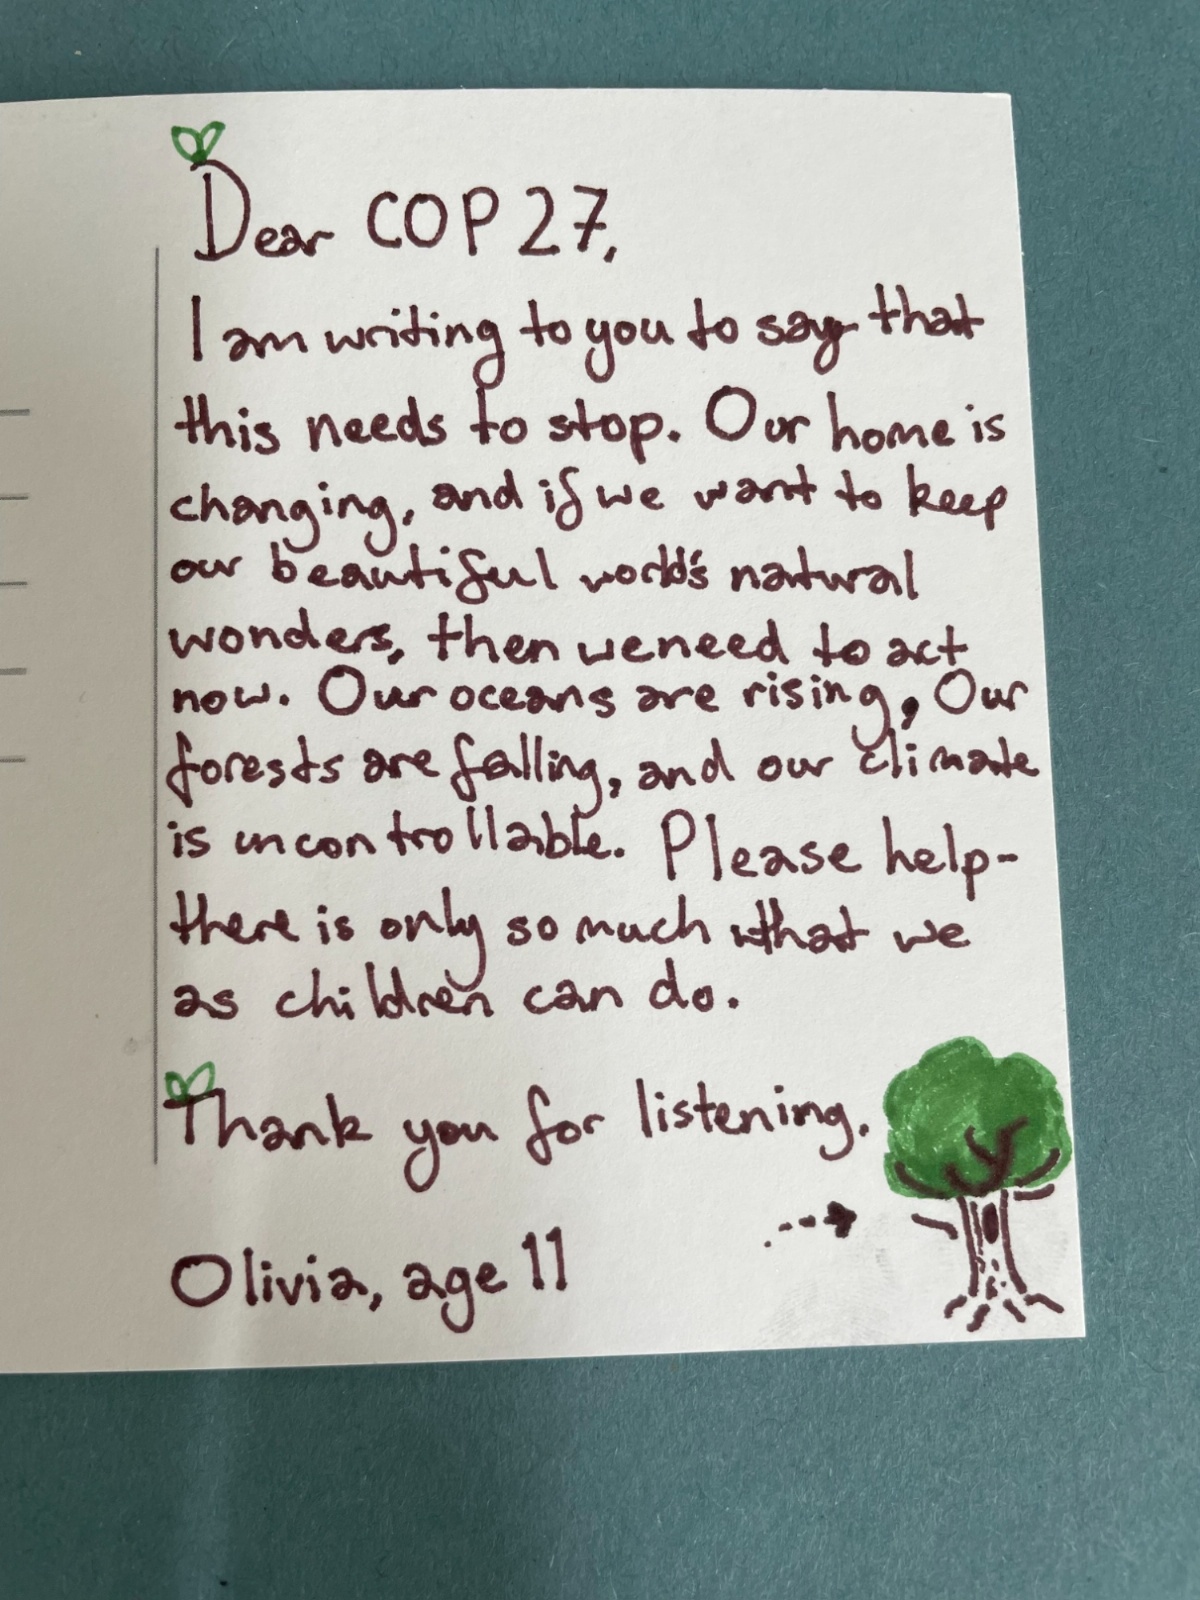 Dear COP 27,
I am writing to you to say that
this needs to stop. Our home is
changing, and if we want to keep
our beautiful world's natural
wonders, then we need to act
now. Our oceans are rising, Our
forests are falling, and our climate
is uncontrollable. Please help-
there is only so much that we
as children can do.
Thank you for listening.
Olivia, age 11